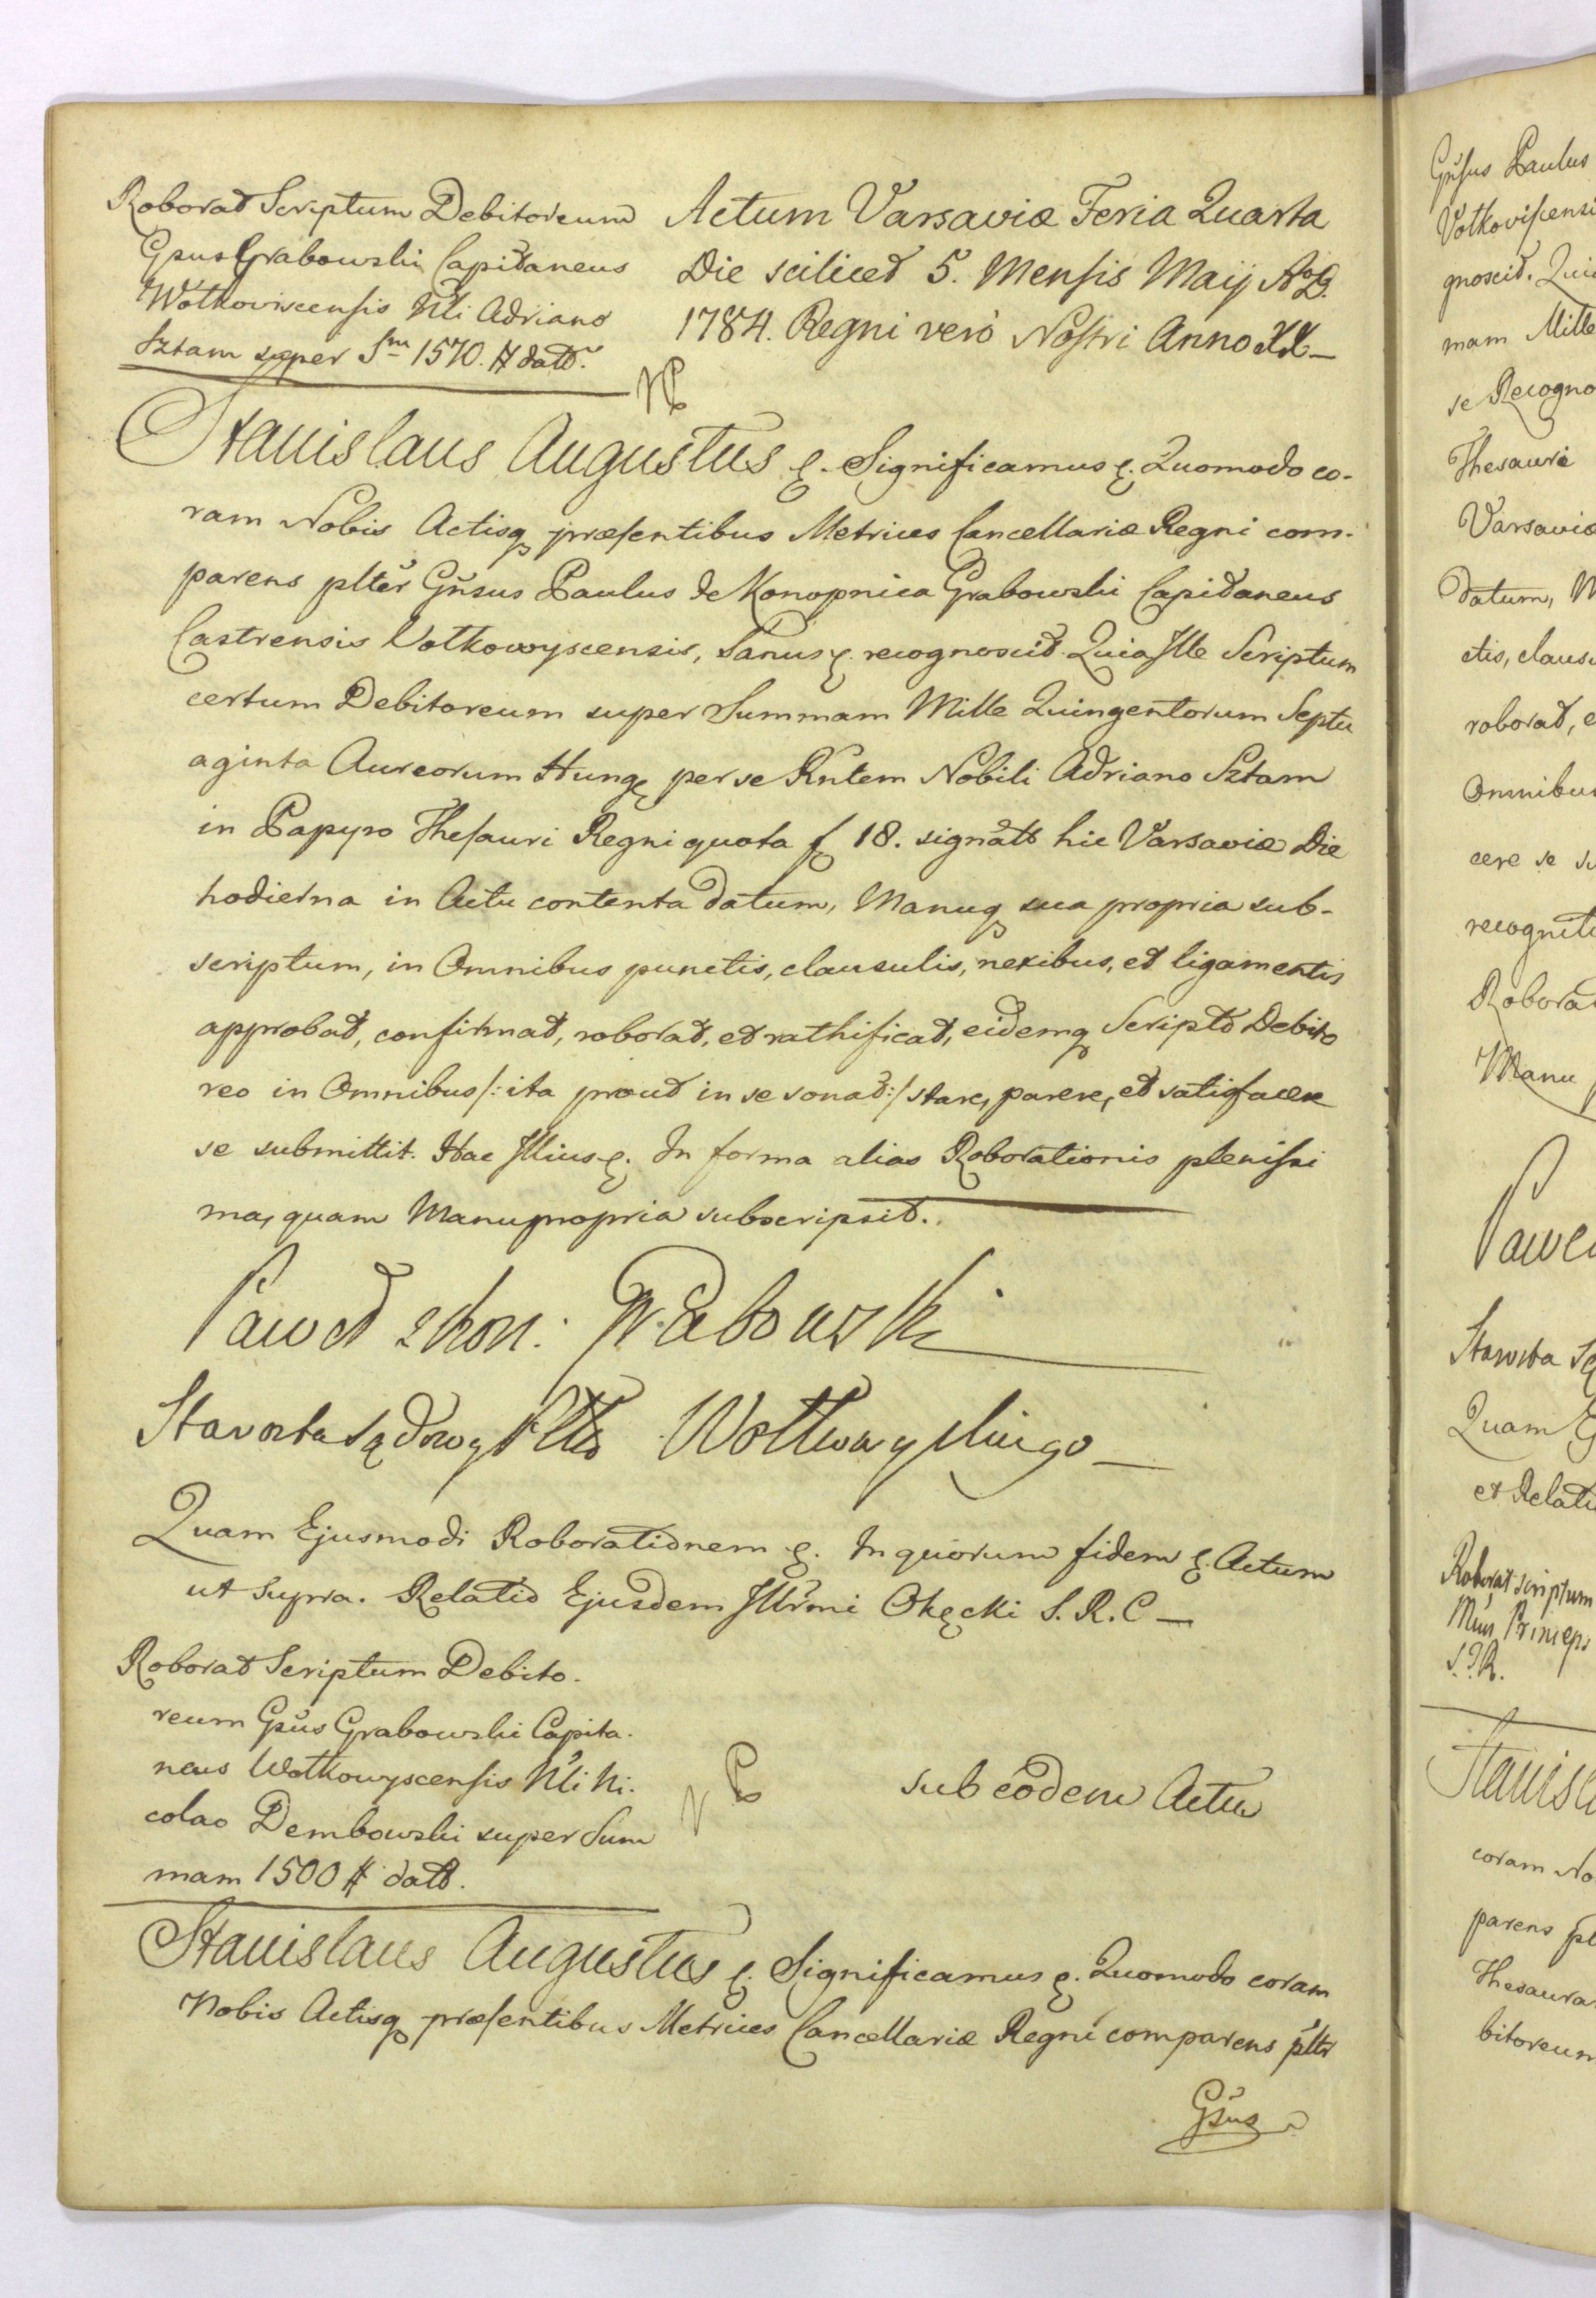 Roborat Scriptum Debitoreum
Gsus Grabowski Capitaneus
Wołkoviscensis Nli Adriano
Sztam super Sm 1570. # datt.
Actum Varsaviæ Feria Quarta
Die scilicet 5. Mensis Maij AoD.
1784. Regni verò Nostri Anno XX
Stanislaus Augustus &. Significamus &. Quomodo co-
ram Nobis Actisq præsentibus Metrices Cancellariæ Regni com-
parens pltėr Gnsus Paulus de Konopnica Grabowski Capitaneus
Castrensis Wołkowyscensis, Sanus &. recognoscit. Quia Ille Scriptum
certum Debitoreum super Summam Mille Quingentorum Septu
aginta Aureorum Hung per se Rntem Nobili Adriano Sztam
in Papyro Thesauri Regni quota f 18. signatt hic Varsaviæ Die
hodierna in Actu contenta datum, Manuq sua propria sub-
scriptum, in Omnibus punctis, clausulis, nexibus, et ligamentis
approbat, confirmat, roborat, et rathificat, eidemq Scripto Debito
reo in Omnibus /: ita prout in se sonat :/ stare, parere, et satisfacere
se submittit. Hac Illius &. In forma alias Roborationis plenissi
ma, quam Manu propria subscripsit.
Paweł z Kon: Grabowski
Starosta Sądowy Pttu Wołkowyskiego
Quam Ejusmodi Roborationem &. In quorum fidem &. Actum
ut Supra. Relatio Ejusdem Illrmi Okęcki S. R. C
Roborat Scriptum Debito-
reum Gsus Grabowski Capita-
neus Wołkowyscensis Nli Ni-
colao Dembowski super Sum
mam 1500 # datt.
sub eodem Actu
Stanislaus Augustus &. Significamus &. Quomodo coram
Nobis Actisq præsentibus Metrices Cancellariæ Regni comparens pltr
Gsus
Gnsus Paulus
gnoscit. Quia
mam Mille
se Recogno
Thesauri
Varsaviæ
datum, M
ctis, clausu
roborat, e
Omnibus
cere se su
recogniti
Roborat
Manu
Paweł
Starosta Są
Quam
et Relati
Roborat Scriptum
Princeps
Stanisl
coram No
parens pl
Thesaura
bitoreum